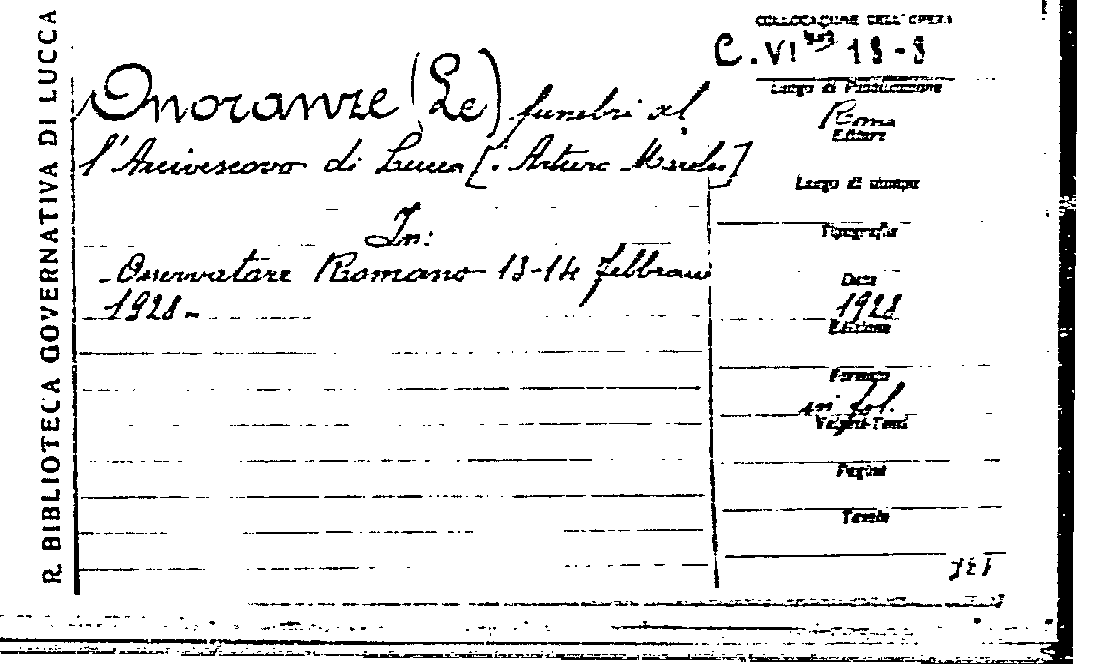 R. BIBLIOTECA GOVERNATIVA DI LUCCA
Onoranze (Le) funebri al
l'Arcivescovo di Lucca [: Arturo
In:
Osservatore Romano 13-14 febbraio
1928-
COLLOCAZIONE DELL'OPERA
C. VI 18-8
Luogo di Pubblicazione
Roma
Editore
Luogo di stampa
Tipografia
Data
1928
Edizione
Formato
in fol.
Volumi-Tomi
Pagine
Tavole